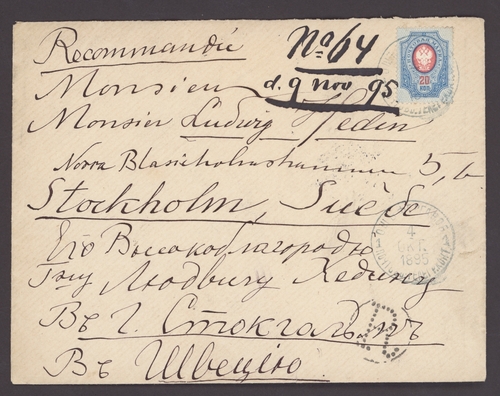 Recommandée
No 64
d. 9 nov 95
20
КОП
Monsieur
Monsieur Ludwig Hedin
Norra Blasieholmshamnen 5, b
Stockholm, Suède
Его Высокоблагородію
Людвигу Хедину
Въ Г. Стокгольмъ
Въ Швецію
4
ОКТ.
1895
R